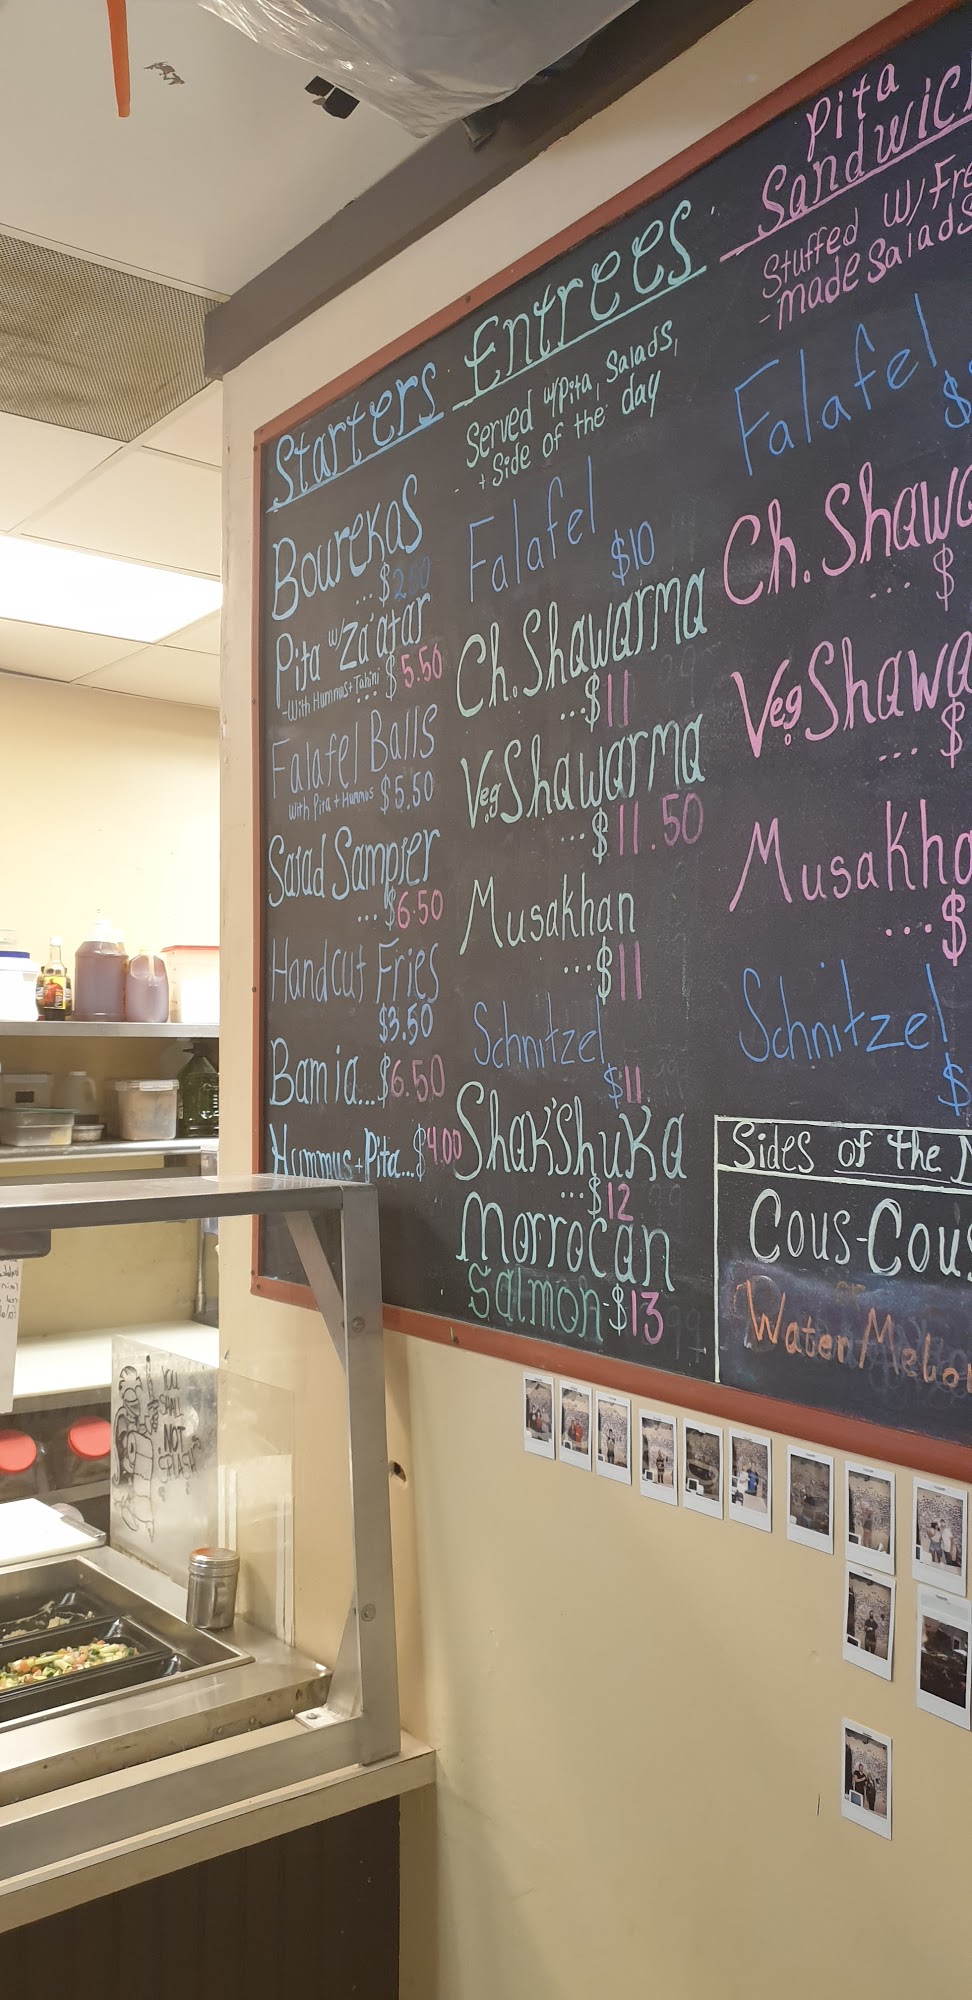 Starters
Bourekas
...$2.
Pita w/Za'atar
-With Hummus+Tahini ...$5.50
Falafel Balls
With Pita + Hummus $5.50
Salad Sampler
...$6.50
Handcut Fries
$3.50
Bamia...$6.50
Hummus+Pita...$4.00
Entrees
Served w/Pita, Salads,
- + Side of the day
Falafel
$10
Ch. Shawarma
...$11
Veg Shawarma
...$11.50
Musakhan
...$11
Schnitzel
$11
Shak'shuka
...$12
Morrocan
Salmon-$13
Pita
Sandwic
Stuffed w/ Fre
-made Salads
Falafel
$
Ch. Shawa
...$
Veg Shawa
...$
Musakha
...$
Schnitzel
$
Sides of the
Cous-Cous
or
WaterMelon
YOU
SHALL
NOT
SPLASH